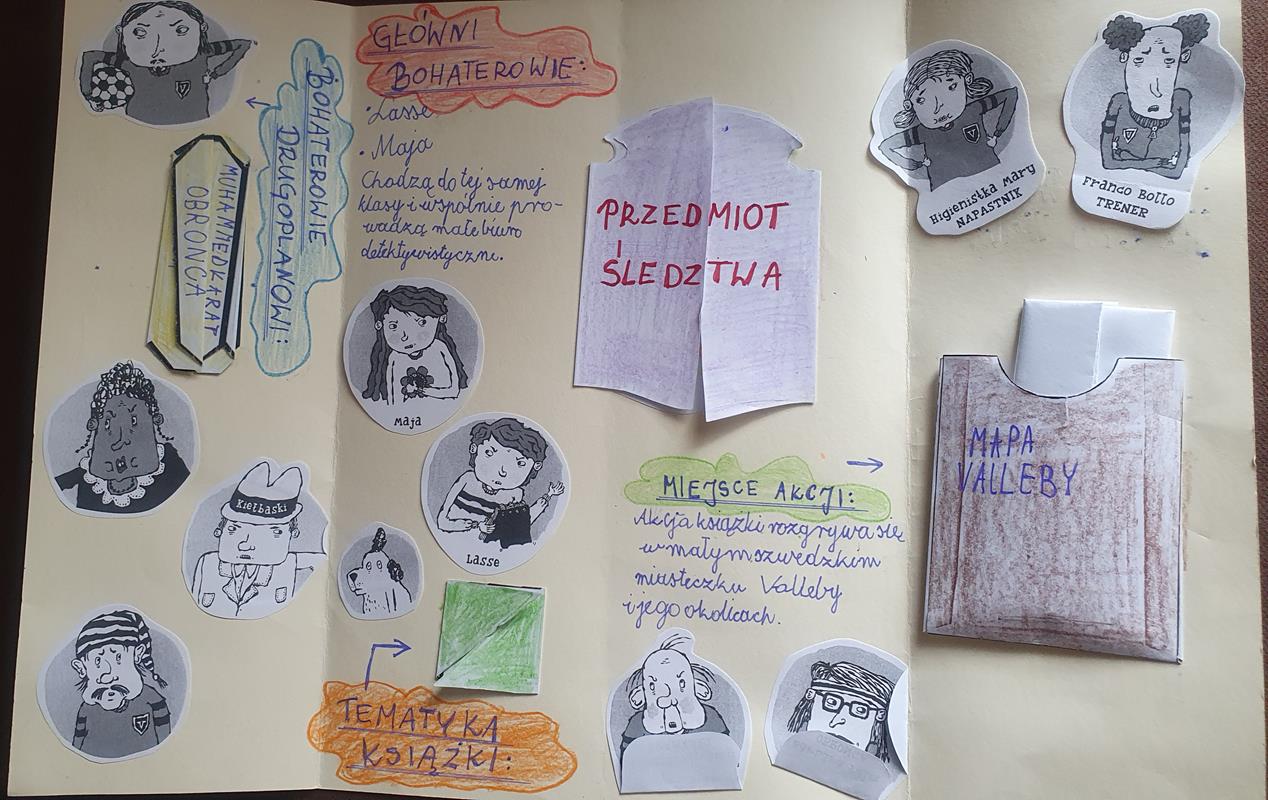 BOHATEROWIE
DRUGOPLANOWI:
MUHAMMEDKARAT
OBROŃCA
Kiełbaski
GŁÓWNI
BOHATEROWIE:
• Lasse
• Maja
Chodzą do tej samej
klasy i wspólnie pro-
wadzą małe biuro
detektywistyczne.
Maja
Lasse
TEMATYKA
KSIĄŻKI:
PRZEDMIOT
ŚLEDZTWA
MIEJSCE AKCJI:
Akcja książki rozgrywa się
w małym szwedzkim
miasteczku Valleby
i jego okolicach.
Higienistka Mary
NAPASTNIK
Franco Bollo
TRENER
MAPA
VALLEBY